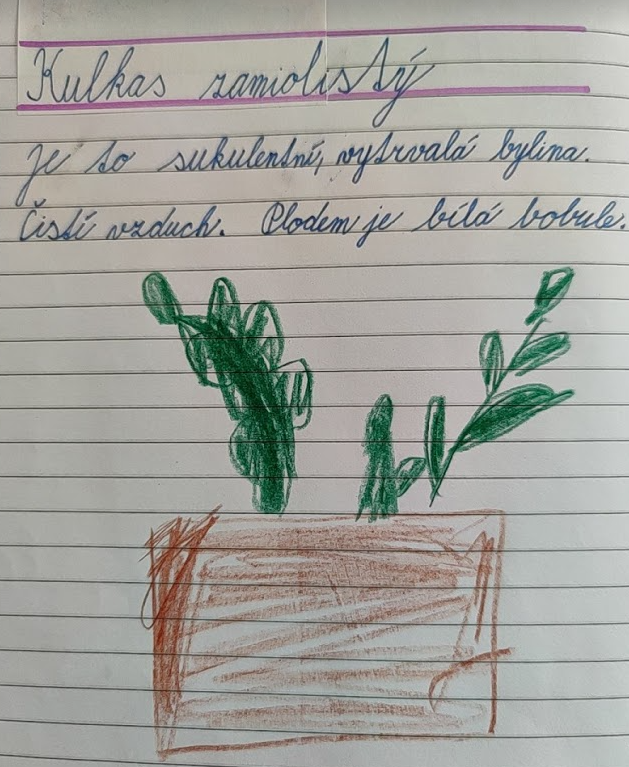 Kulkas zamiolistý
je to sukulentní, vytrvalá bylina.
Čistí vzduch. Plodem je bílá bobule.